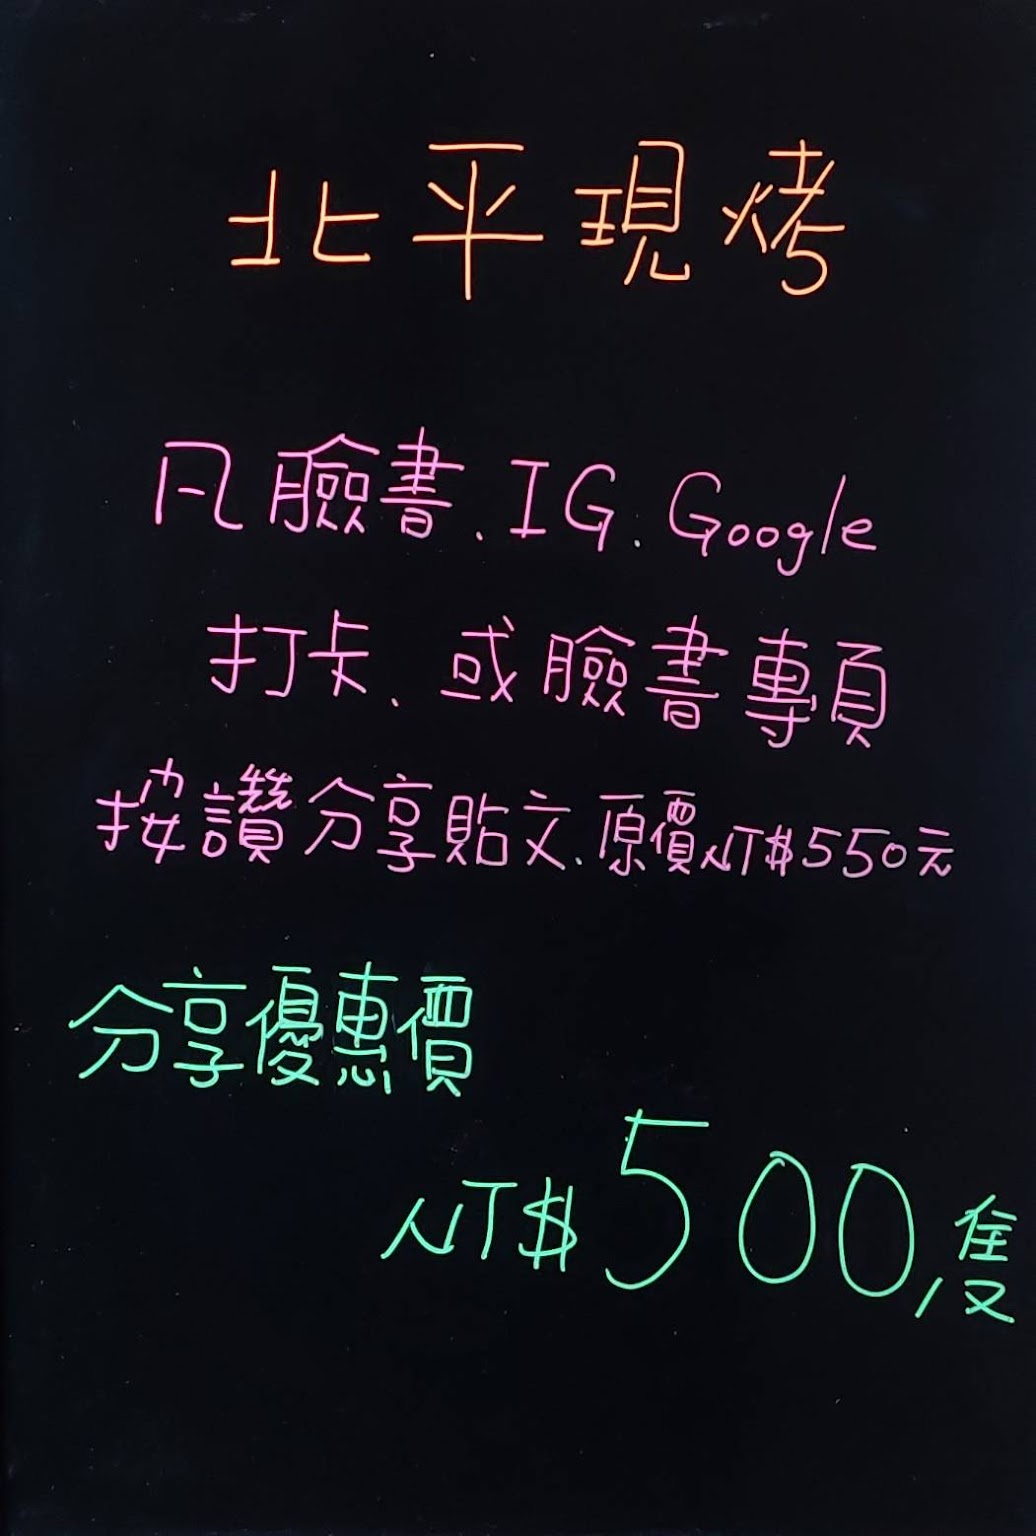 北平現烤
凡臉書、IG、Google
打卡、或臉書專頁
按讚分享貼文、原價NT$550元
分享優惠價
NT$500/隻